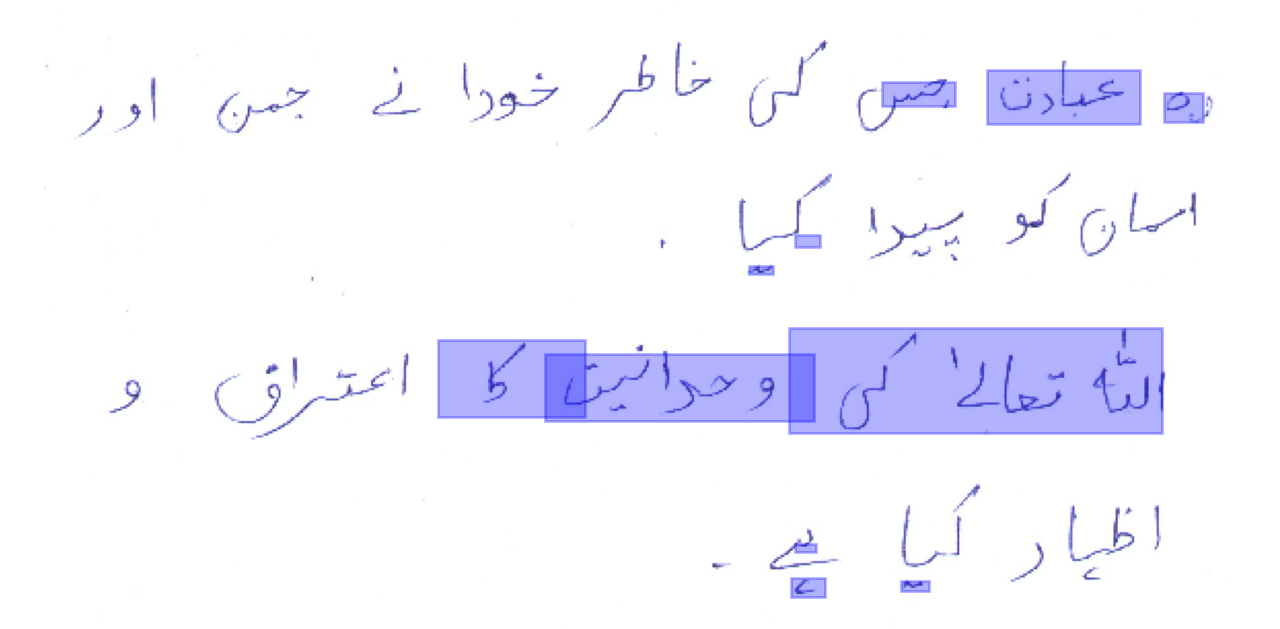 وہ عبادت جس کی خاطر خودا نے جن اور
انسان کو پیدا کیا .
اللہ تعالےٰ کی وحدانیت کا اعتراق و
اظہار کیا ہے ۔